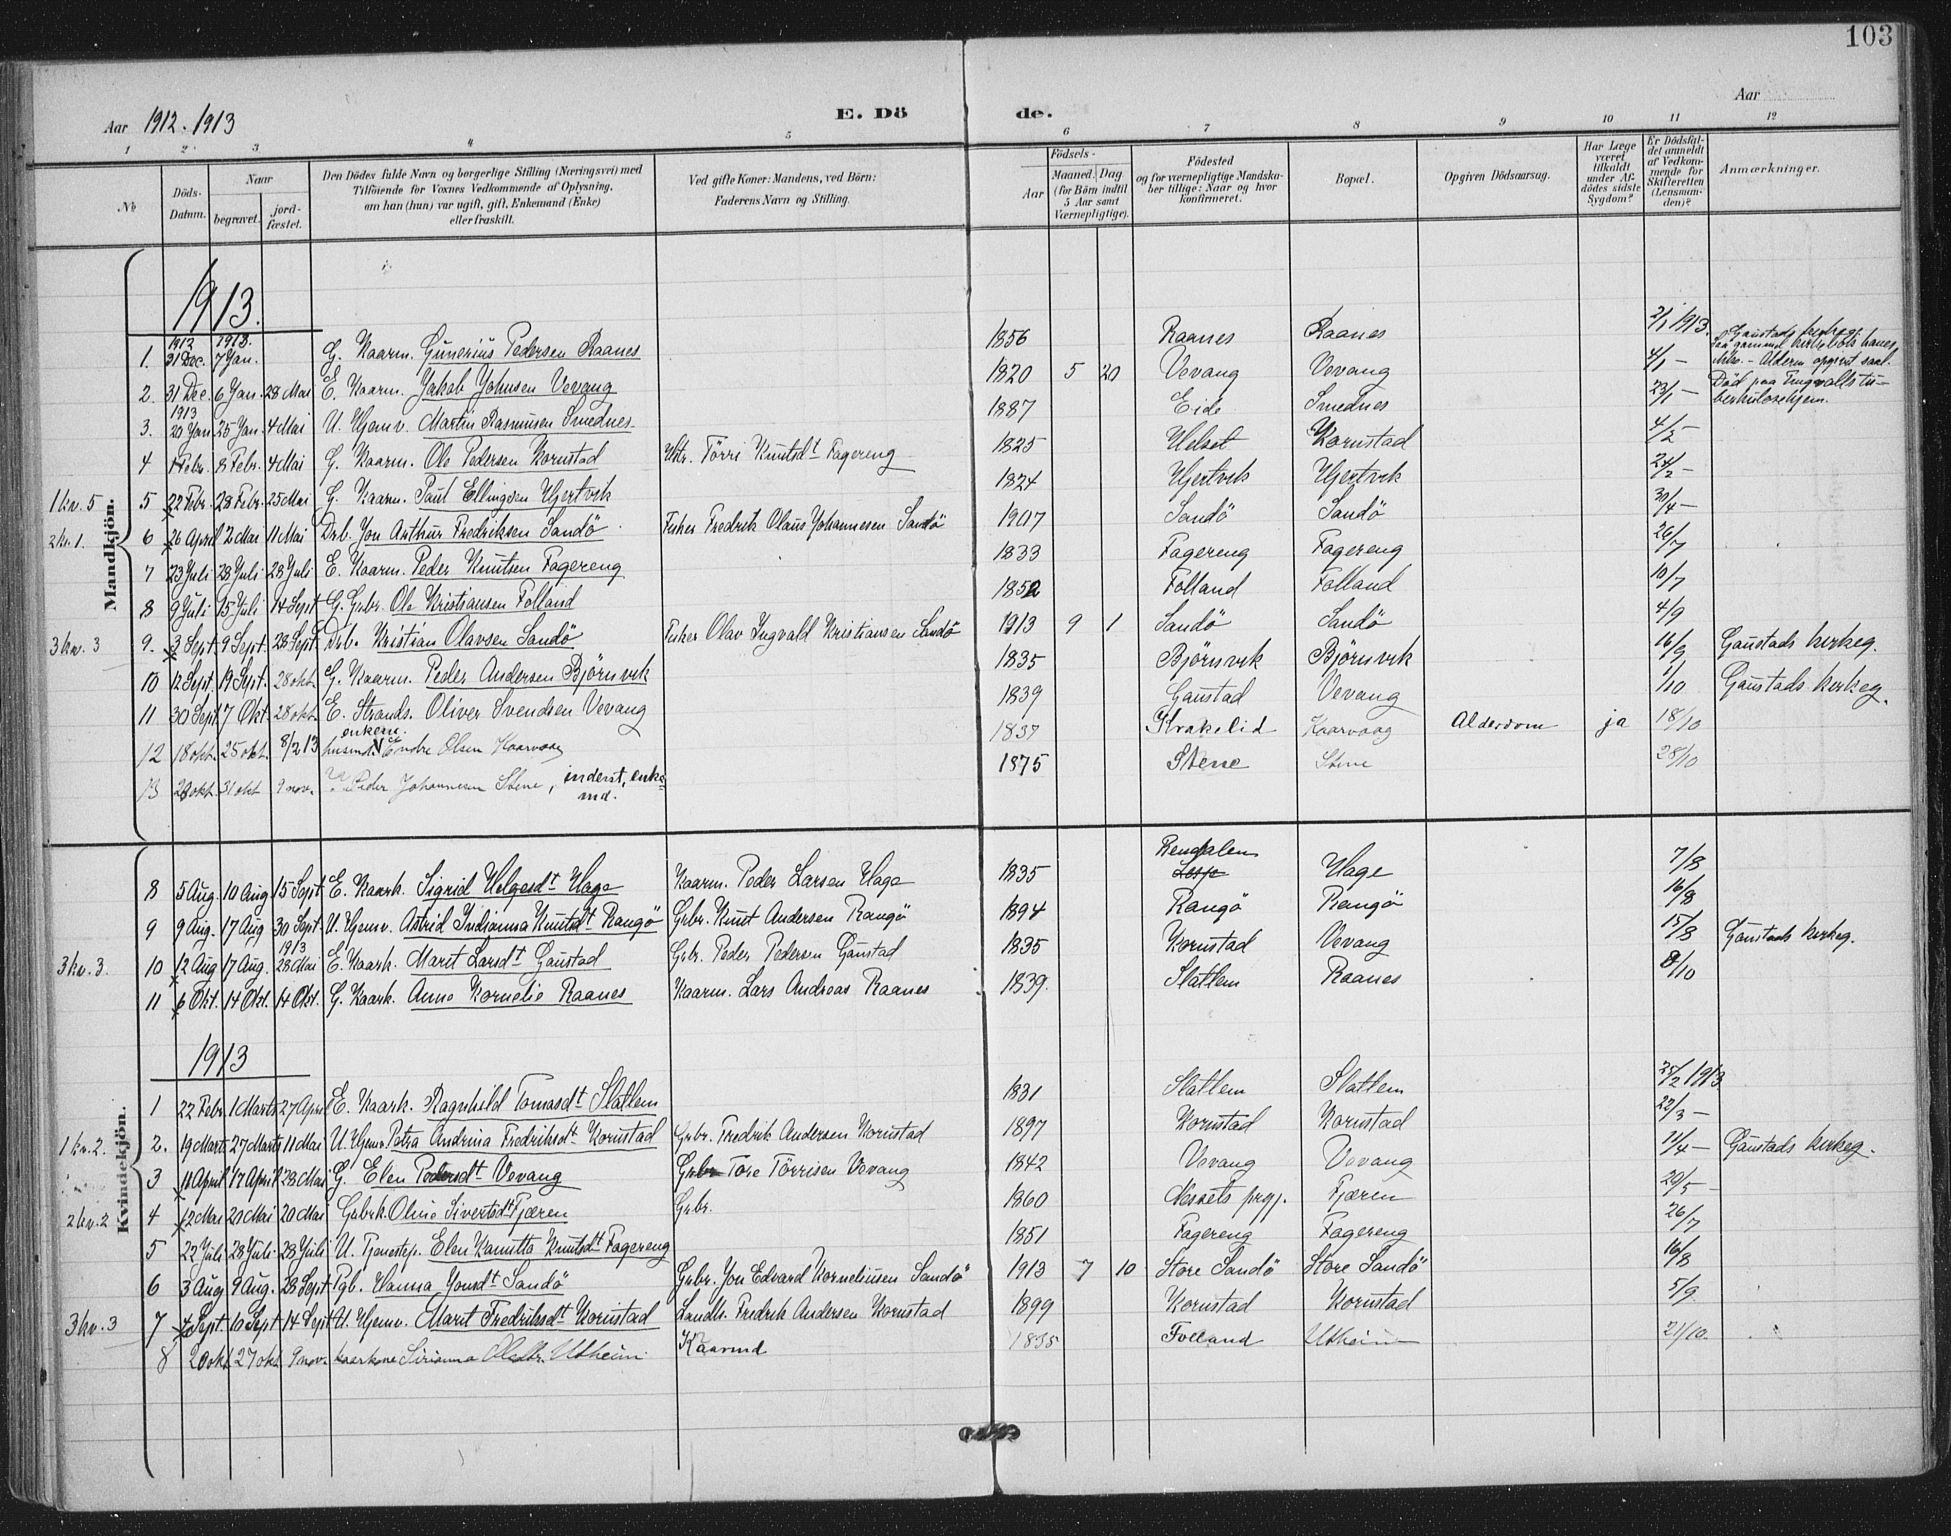 103
Aar 1912. 1913
E. Dö
de.
Aar
1 2 3 4 5 6 7 8 9 10 11 12
No
Döds-Datum.
Naar
begravet.
jord-fæstet.
Den Dödes fulde Navn og borgerlige Stilling (Næringsvei) med
Tilföiende for Voxnes Vedkommende af Oplysning,
om han (hun) var ugift, gift, Enkemand (Enke)
eller fraskilt.
Ved gifte Koner: Mandens, ved Börn:
Faderens Navn og Stilling.
Födsels-
Aar
Maaned. Dag
(for Börn indtil
5 Aar samt
Værnepligtige).
Födested
og for værnepligtige Mandska-
ber tillige: Naar og hvor
konfirmeret.
Bopæl.
Opgiven Dödsaarsag.
Har Læge
været
tilkaldt
under Af-
dödes sidste
Sygdom?
Er Dödsfal-
det anmeldt
af Vedkom-
mende for
Skifteretten
(Lensman-
den)?
Anmærkninger.
Mandkjön.
1913.
1912 1913.
1. 31 Dec. 7 Jan. G. Kaarm. Gunerius Pedersen Raanes 1856 Raanes Raanes 2/1 1913. Gaustads kirkeg.
2. 31 Dec. 6 Jan. 28 Mai E. Kaarm. Jakob Johnsen Vevang 1820 5 20 Vevang Vevang 4/1 – paa gammel kirkebok haves ikke. – Alderen opgivet saal.
1913
3. 20 Jan. 25 Jan. 4 Mai U. Hjemv. Martin Rasmusen Smednes 1887 Eide Smednes 23/1 – Död paa Tingvolls tuberkulosehjem.
4 1 Febr. 8 Febr. 4 Mai G. Kaarm. Ole Pedersen Kornstad Hstr. Törri Knutsdt Fagereng 1825 Helset Kornstad 4/2 –
1 kv. 5 5 22 Febr. 28 Febr. 25 Mai G. Kaarm. Paul Ellingsen Hjertvik 1824 Hjertvik Hjertvik 24/2 –
2 kv. 1. 6 26 April 2 Mai 11 Mai Drb. Jon Arthur Fredriksen Sandö Fisker Fredrik Olaus Johannesen Sandö 1907 Sandö Sandö 30/4 –
7 23 Juli 28 Juli 28 Juli E. Kaarm. Peder Knutsen Fagereng 1833 Fagereng Fagereng 26/7
8 9 Juli 15 Juli 14 Sept G. Grbr. Ole Kristiansen Folland 1852 Folland Folland 10/7
3 kv. 3 9. 3 Sept. 9 Sept. 28 Sept. Drb. Kristian Olavsen Sandö Fisker Olav Ingvald Kristiansen Sandö 1913 9 1 Sandö Sandö 4/9
10 12 Sept. 19 Sept. 28 okt. G. Kaarm. Peder Andersen Björnvik 1835 Björnvik Björnvik 16/9 Gaustads kirkeg.
11 30 Sept. 7 Okt. 28 okt. E. Strands. Oliver Svendsen Vevang 1839 Gaustad Vevang 1/10 Gaustads kirkeg.
12 18 okt. 25 okt. 8/2 13 husmd. enkem. Endre Olsen Kaarvaag 1837 Krakelid Kaarvaag Alderdom ja 18/10
13 26 okt. 31 okt 9 nov. Peder Johannesen Stene, inderst, enkemd. 1875 Stene Stene 28/10
Kvindekjön.
8 5 Aug. 10 Aug 15 Sept E. Kaark. Sigrid Helgesdt Hage Kaarm. Peder Larsen Hage 1835 Rendalen Lesje Hage 7/8
9 9 Aug. 17 Aug 30 Sept. U. Hjemv. Astrid Indianna Knutsdt Rangö Grbr. Knut Andersen Rangö 1894 Rangö Rangö 16/8
1913
3 kv. 3. 10 12 Aug 17 Aug. 28 Mai E. Kaark. Marit Larsdt Gaustad Grbr. Peder Pedersen Gaustad 1835 Kornstad Vevang 15/8 Gaustads kirkeg.
11 6 Okt. 14 Okt. 14 Okt. G. Kaark. Anne Kornelie Raanes Kaarm. Lars Andreas Raanes 1839. Slatlem Raanes 8/10
1913
1 22 Febr. 1 Marts 27 April E. Kaark. Ragnhild Tomasdt Slatlem 1831 Slatlem Slatlem 25/2 1913
1 kv. 2. 2. 19 Marts 27 Marts 11 Mai U. Hjemv. Petra Andrina Fredriksdt Kornstad Grbr. Fredrik Andersen Kornstad 1897 Kornstad Kornstad 22/3 –
3 11 April 17 April 28 Mai G. Elen Pedersdt Vevang Grbr Tore Törrisen Vevang 1842 Vevang Vevang 11/4 – Gaustads kirkeg.
2 kv. 2 4 12 Mai 20 Mai 20 Mai Grbrk. Oline Sivertsdt Fjæren Grbr. 1860 Nessets prgj. Fjæren 20/5 –
5 22 Juli 28 Juli 28 Juli U. Tjenestep. Elen Kanutta Knutsdt Fagereng 1851 Fagereng Fagereng 26/7
6 3 Aug 9 Aug. 28 Sept Pgb. Hanna Jonsdt Sandö Grbr. Jon Edvard Korneliusen Sandö 1913 7 10 Store Sandö Store Sandö 16/8
3 kv. 3 7 4 Sept. 10 Sept 14 Sept U. Hjemv. Marit Fredriksdt Kornstad Landh. Fredrik Andersen Kornstad 1899 Kornstad Kornstad 5/9.
8 20 okt 27 okt. 9 nov. kaarkone Sirianna Olsdtr. Utheim Kaarmd 1835 Folland Utheim 21/10.